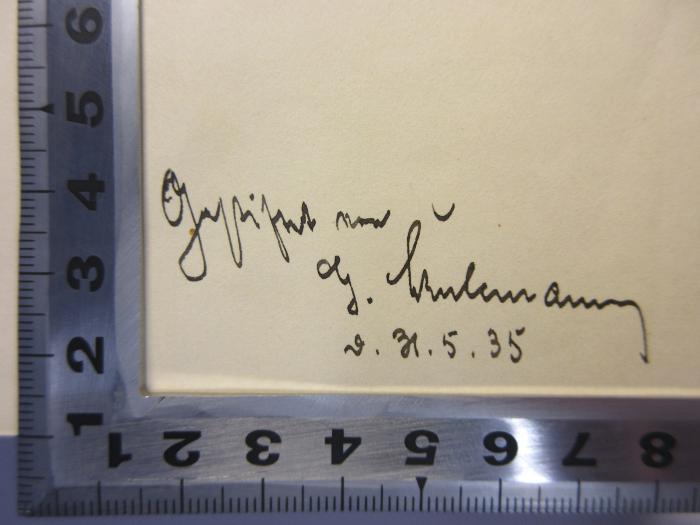 6
5
4
3
2
1
Gestiftet von
G. Kulemann
d. 31.5.35
1 2 3 4 5 6 7 8